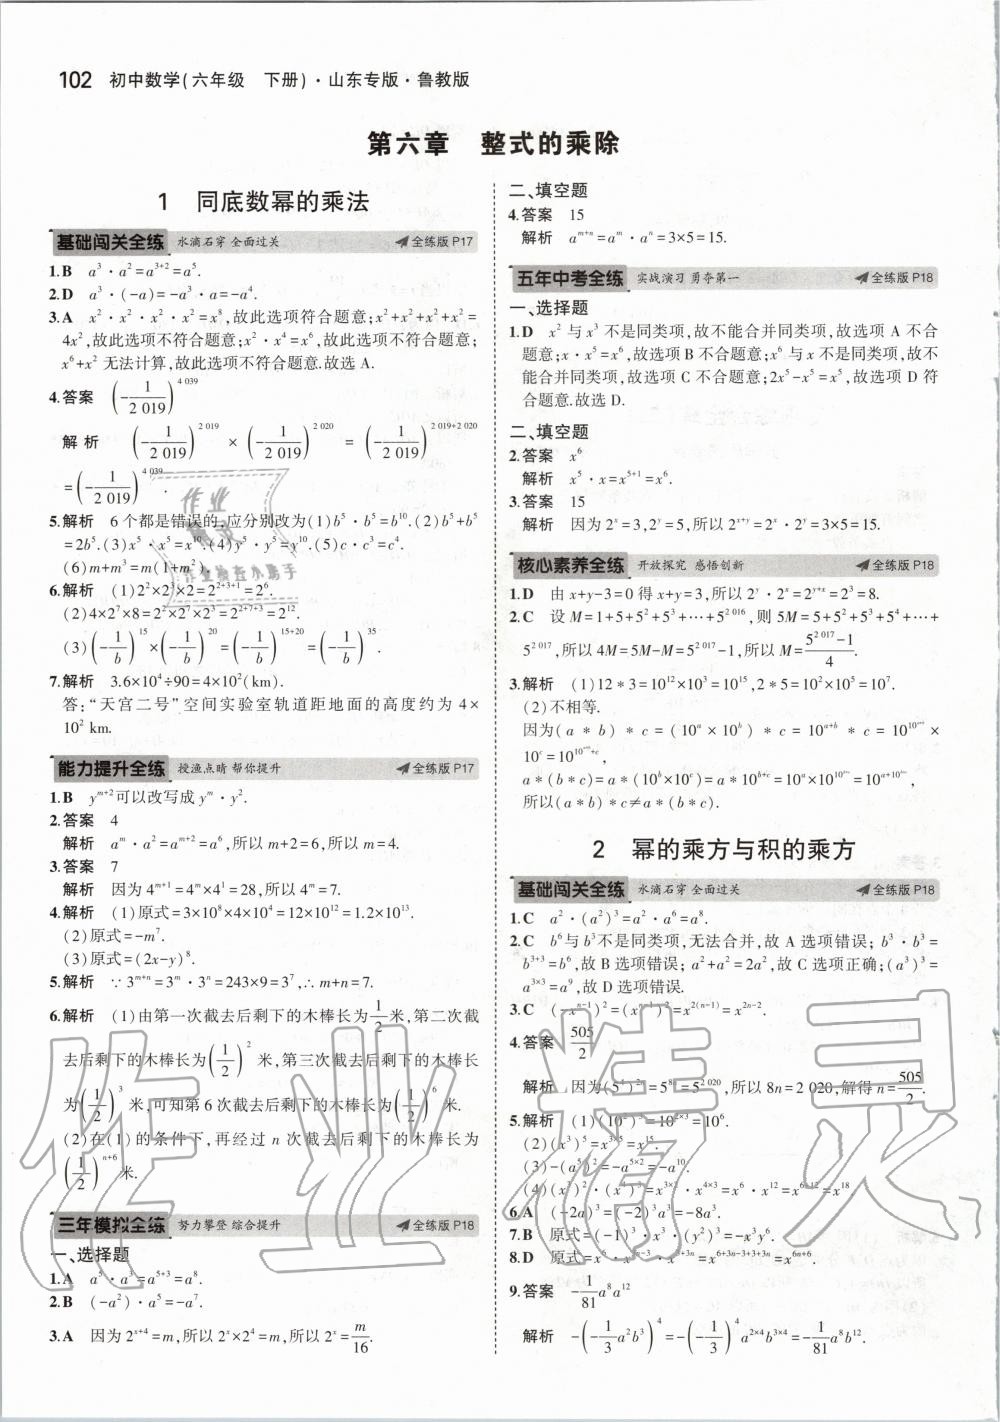 102 初中数学(六年级 下册)·山东专版·鲁教版
第六章 整式的乘除
1 同底数幂的乘法
基础闯关全练 水滴石穿 全面过关 全练版P17
1.B a³·a²=a³⁺²=a⁵.
2.D a³·(-a)=-a³·a=-a⁴.
3.A x²·x²·x²·x²=x⁸,故此选项符合题意;x²+x²+x²+x²=
4x²,故此选项不符合题意;x²·x⁴=x⁶,故此选项不符合题意;
x⁶+x²无法计算,故此选项不符合题意.故选A.
4.答案 (-1/2 019)^{4 039}
解析 (-1/2 019)^{2 019}×(-1/2 019)^{2 020}=(-1/2 019)^{2 019+2 020}
=(-1/2 019)^{4 039}.
5.解析 6个都是错误的,应分别改为(1)b⁵·b⁵=b¹⁰.(2)b⁵+b⁵
=2b⁵.(3)x⁵·x⁵=x¹⁰.(4)y⁵·y⁵=y¹⁰.(5)c·c³=c⁴.
(6)m+m³=m(1+m²).
6.解析 (1)2²×2³×2=2²⁺³⁺¹=2⁶.
(2)4×2⁷×8=2²×2⁷×2³=2²⁺⁷⁺³=2¹².
(3)(-1/b)^{15}×(-1/b)^{20}=(-1/b)^{15+20}=(-1/b)^{35}.
7.解析 3.6×10⁴÷90=4×10²(km).
答:“天宫二号”空间实验室轨道距地面的高度约为4×
10² km.
能力提升全练 授渔点睛 帮你提升 全练版P17
1.B y^{m+2}可以改写成y^m·y².
2.答案 4
解析 a^m·a²=a^{m+2}=a⁶,所以m+2=6,所以m=4.
3.答案 7
解析 因为4^{m+1}=4^m×4¹=28,所以4^m=7.
4.解析 (1)原式=3×10⁸×4×10⁴=12×10¹²=1.2×10¹³.
(2)原式=-m⁷.
(3)原式=(2x-y)⁸.
5.解析 ∵3^{m+n}=3^m·3^n=243×9=3⁷,∴m+n=7.
6.解析 (1)由第一次截去后剩下的木棒长为1/2米,第二次截
去后剩下的木棒长为(1/2)²米,第三次截去后剩下的木棒长
为(1/2)³米,可知第6次截去后剩下的木棒长为(1/2)⁶米.
(2)在(1)的条件下,再经过n次截去后剩下的木棒长为
(1/2)^{n+6}米.
三年模拟全练 努力攀登 综合提升 全练版P18
一、选择题
1.A a⁵·a³=a⁵⁺³=a⁸.
2.B (-a²)·a⁵=-a⁷.
3.A 因为2^{x+4}=m,所以2^x×2⁴=m,所以2^x=m/16.
二、填空题
4.答案 15
解析 a^{m+n}=a^m·a^n=3×5=15.
五年中考全练 实战演习 勇夺第一 全练版P18
一、选择题
1.D x²与x³不是同类项,故不能合并同类项,故选项A不合
题意;x·x⁵=x⁶,故选项B不合题意;x⁶与x不是同类项,故不
能合并同类项,故选项C不合题意;2x⁵-x⁵=x⁵,故选项D符
合题意.故选D.
二、填空题
2.答案 x⁶
解析 x⁵·x=x⁵⁺¹=x⁶.
3.答案 15
解析 因为2^x=3,2^y=5,所以2^{x+y}=2^x·2^y=3×5=15.
核心素养全练 开放探究 感悟创新 全练版P18
1.D 由x+y-3=0得x+y=3,所以2^y·2^x=2^{y+x}=2³=8.
2.C 设M=1+5+5²+5³+⋯+5^{2 016},则5M=5+5²+5³+5⁴+⋯+
5^{2 017},所以4M=5M-M=5^{2 017}-1,所以M=(5^{2 017}-1)/4.
3.解析 (1)12*3=10¹²×10³=10¹⁵,2*5=10²×10⁵=10⁷.
(2)不相等.
因为(a*b)*c=(10^a×10^b)*c=10^{a+b}*c=10^{10^{a+b}}×
10^c=10^{10^{a+b}+c},
a*(b*c)=a*(10^b×10^c)=a*10^{b+c}=10^a×10^{10^{b+c}}=10^{a+10^{b+c}},
所以(a*b)*c≠a*(b*c).
2 幂的乘方与积的乘方
基础闯关全练 水滴石穿 全面过关 全练版P18
1.C a²·(a²)³=a²·a⁶=a⁸.
2.C b⁶与b³不是同类项,无法合并,故A选项错误;b³·b³=
b³⁺³=b⁶,故B选项错误;a²+a²=2a²,故C选项正确;(a³)³=
a³ˣ³=a⁹,故D选项错误.
3.C (-x^{n-1})²=(x^{n-1})²=x^{2(n-1)}=x^{2n-2}.
4.答案 505/2
解析 因为(5⁴)²=5⁸=5^{2 020},所以8n=2 020,解得n=505/2.
5.解析 (1)(10²)³=10^{2×3}=10⁶.
(2)(x³)⁵=x^{3×5}=x¹⁵.
(3)-(a⁵)²=-a^{5×2}=-a¹⁰.
(4)(x³)²·(x⁴)³=x^{3×2}·x^{4×3}=x⁶·x¹²=x^{6+12}=x¹⁸
6.A (-2a)³=(-2)³a³=-8a³.
7.B 原式=(-1)³·x³·(y²)³=-x³y⁶.
8.D 原式=x⁶·x^{3n-3}·x^{3+3n}=x^{6+3n-3+3+3n}=x^{6n+6}.
9.答案 -1/81 a⁸a¹²
解析 -(-1/3 a²b³)⁴=-(-1/3)⁴a^{2×4}b^{3×4}=-1/81 a⁸b¹².
作业精灵